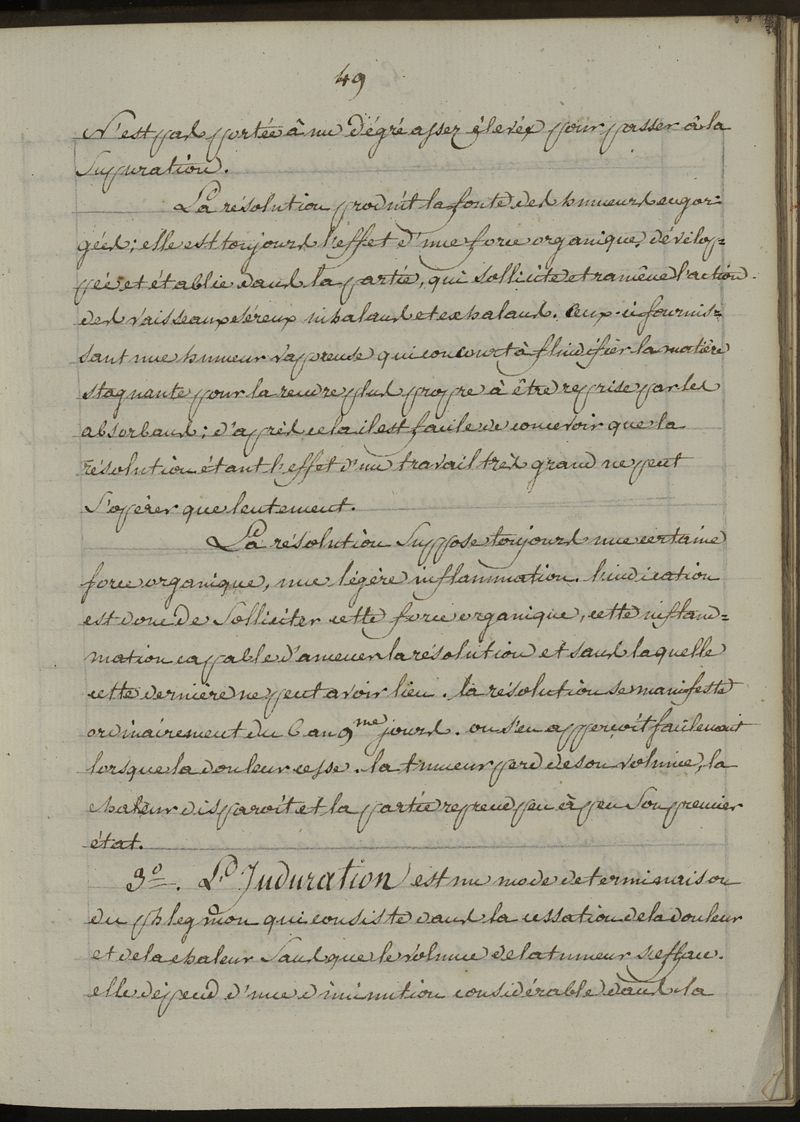 49
N'est pas portée à un dégré assez élevéx pour passer à la
Suppuration.
La résolution produit la fonte des humeurs engor=
gées; elle est toujours l'effet d'une force organique, dévelop=
pée et établie dans la partie, qui sollicite et ramène l'action
des vaisseaux séreux inhalans et exhalans. Ceux-ci fournis=
sant une humeur vapreuse qui concourt à fluidifier la matière
stagnante pour la rendre plus propre à être reprise par les
absorbans; d'après cela il est facile de concevoir que la
résolution étant l'effet d'un travail très grand ne peut
S'opérer que lentement.
La résolution Suppose toujours une certaine
force organique, une légère inflammation. l'indication
est donc de Solliciter cette force organique, cette inflam=
mation capable d'amener la résolution et sans laquelle
cette dernière ne peut avoir lieu. la résolution se manifeste
ordinairement du 6 au 9me jours. on s'en apperçoit facilement
lorsque la douleur cesse. la tumeur perd de son volume, la
chaleur disparoit et la partie reprend peu à peu Son premier
état.
3o. L'Induration est un mode de terminaison
du phlegmon qui consiste dans la cessation de la douleur
et de la chaleur Sans que le volume de la tumeur s'efface.
elle dépend d'une diminution considérable dans la